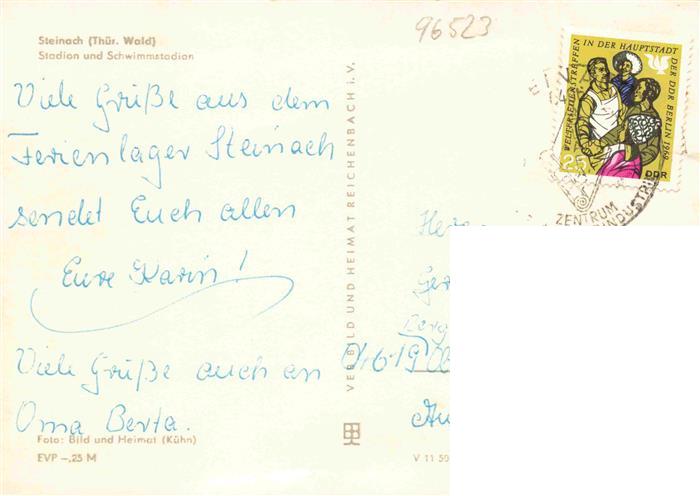 96523
Steinach (Thür. Wald)
Stadion und Schwimmstadion
Viele Grüße aus dem
Ferienlager Steinach
sendet Euch allen
Eure Karin!
Viele Grüße auch an
Oma Berta.
Foto: Bild und Heimat (Kühn)
EVP -,25 M
VEB BILD UND HEIMAT REICHENBACH i. V.
V 11 50
WELTFRIEDENSTREFFEN IN DER HAUPTSTADT DER DDR BERLIN 1969
25
DDR
ZENTRUM